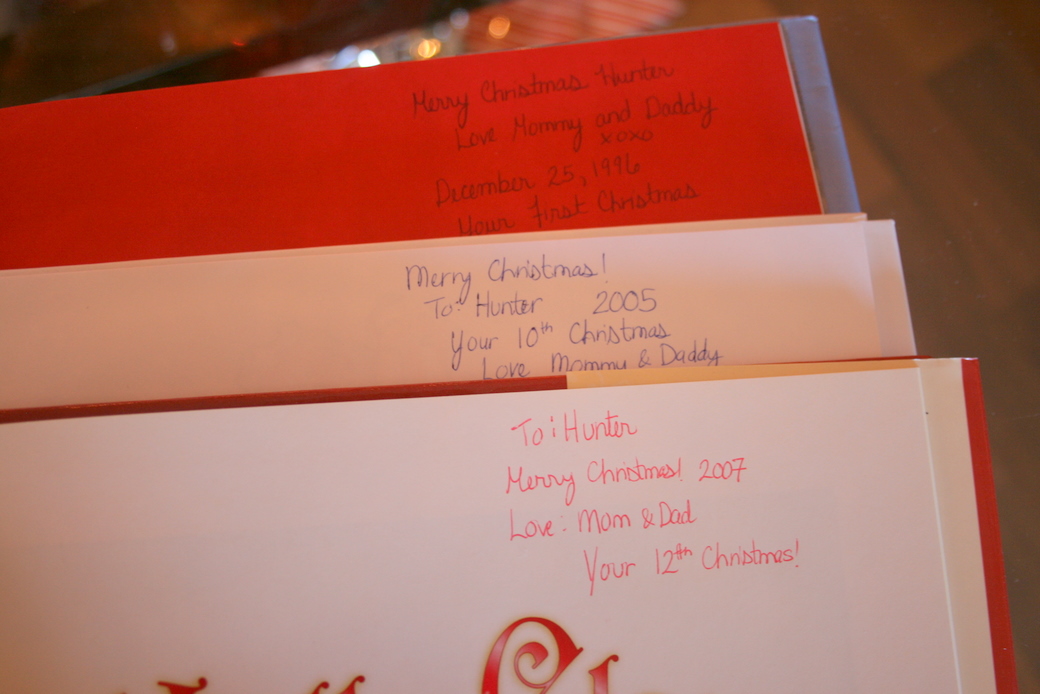 Merry Christmas Hunter
Love Mommy and Daddy
xoxo
December 25, 1996
Your First Christmas
Merry Christmas!
To: Hunter 2005
Your 10th Christmas
Love Mommy & Daddy
To: Hunter
Merry Christmas! 2007
Love: Mom & Dad
Your 12th Christmas!